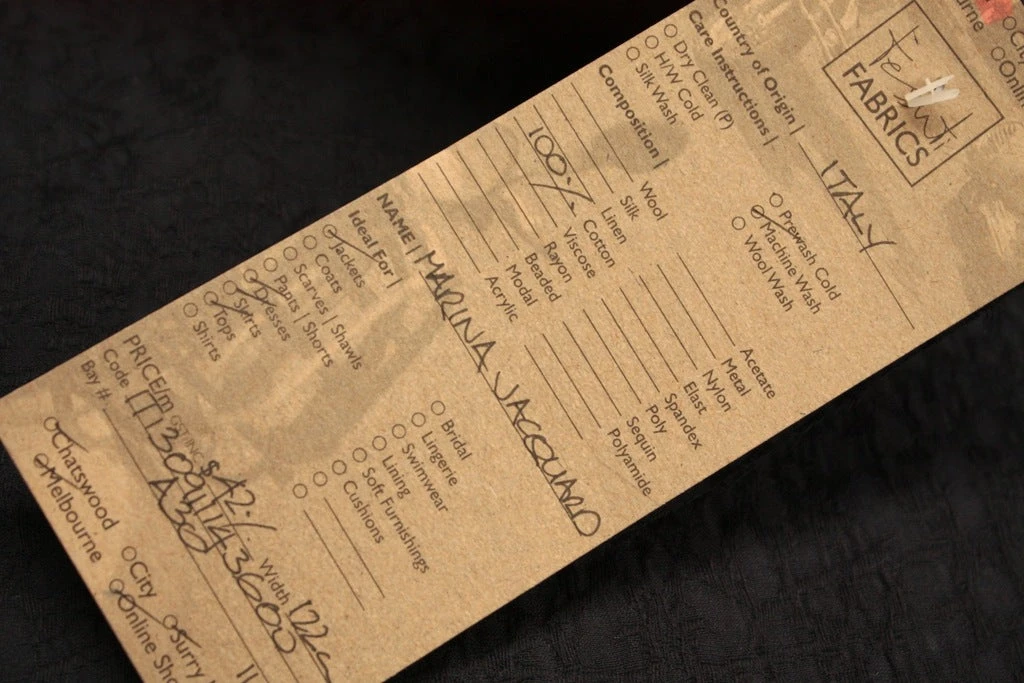 FABRICS
Country of Origin | ITALY
Care Instructions |
Dry Clean (P)
H/W Cold
Silk Wash
Prewash Cold
Machine Wash
Wool Wash
Composition |
Wool
Silk
Linen
100% Cotton
Viscose
Rayon
Beaded
Modal
Acrylic
Acetate
Metal
Nylon
Elast
Spandex
Poly
Sequin
Polyamide
NAME | MARINA JACQUARD
Ideal For |
Jackets
Coats
Scarves | Shawls
Pants | Shorts
Dresses
Skirts
Tops
Shirts
Bridal
Lingerie
Swimwear
Lining
Soft Furnishings
Cushions
PRICE/m $42 Width 122
Code
Bay # A30
Chatswood
Melbourne
City
Online Sho
Surry